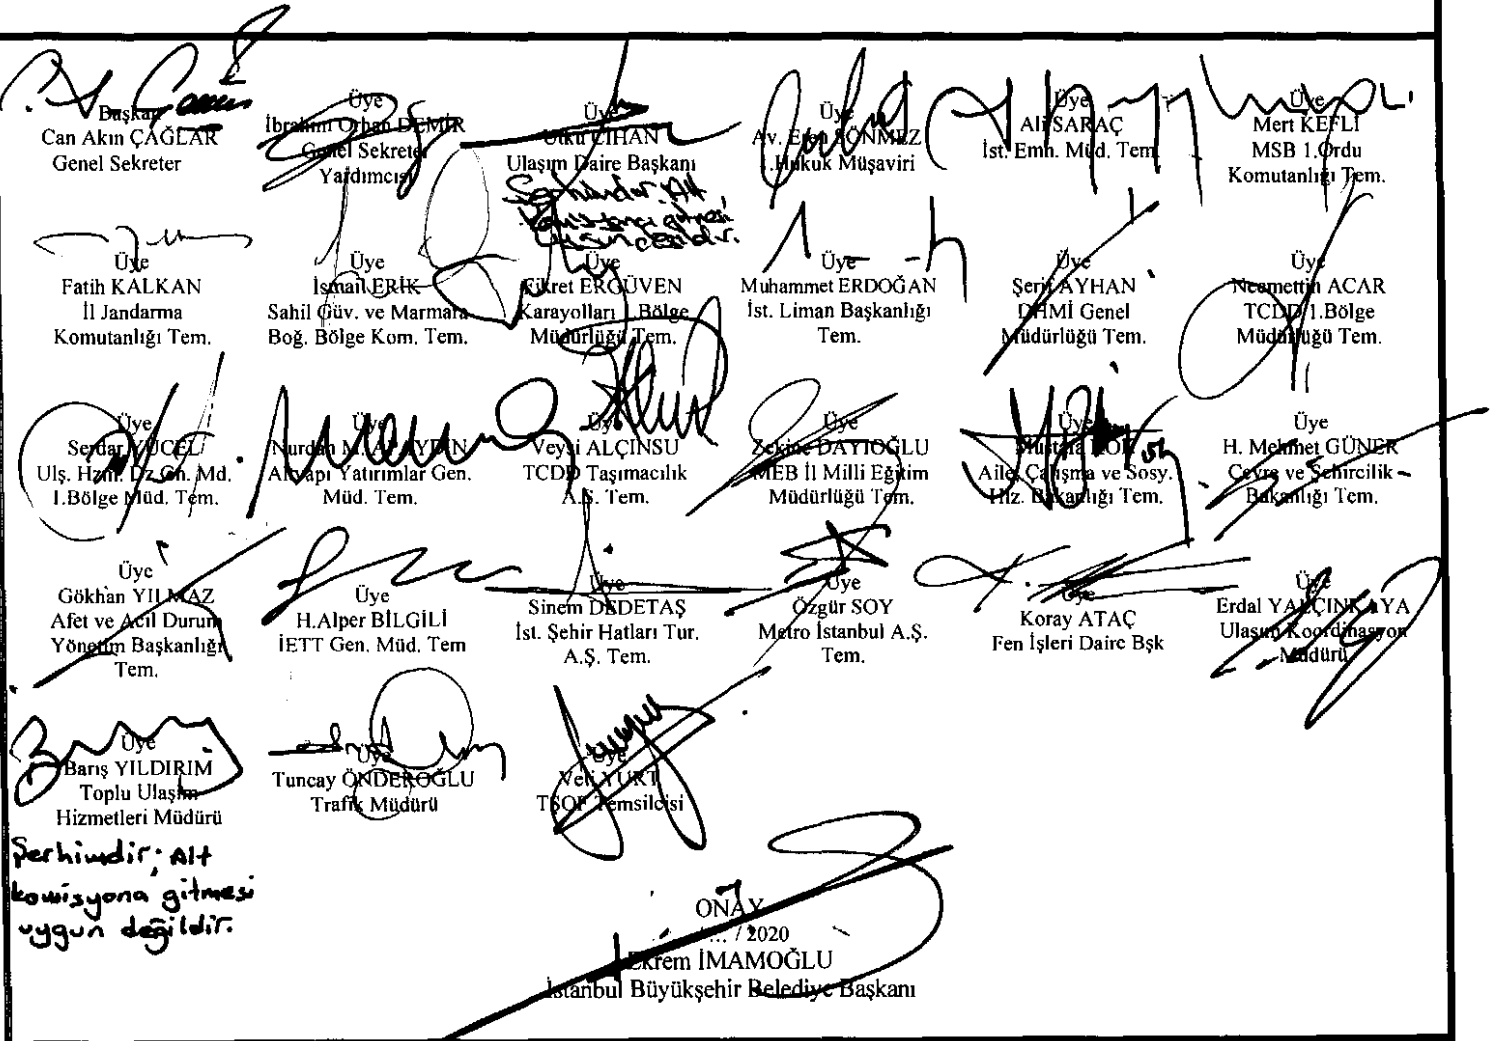 Başkan
Can Akın ÇAĞLAR
Genel Sekreter
Üye
İbrahim Orhan DEMİR
Genel Sekreter
Yardımcısı
Üye
Utku CİHAN
Ulaşım Daire Başkanı
Şerhimdir. Alt
Üye
Av. Eren SÖNMEZ
Hukuk Müşaviri
Üye
Ali SARAÇ
İst. Emn. Müd. Tem.
Üye
Mert KEFLİ
MSB 1.Ordu
Komutanlığı Tem.
Üye
Fatih KALKAN
İl Jandarma
Komutanlığı Tem.
Üye
İsmail ERİK
Sahil Güv. ve Marmara
Boğ. Bölge Kom. Tem.
Üye
Fikret ERGÜVEN
Karayolları Bölge
Müdürlüğü Tem.
Üye
Muhammet ERDOĞAN
İst. Liman Başkanlığı
Tem.
Üye
Şerif AYHAN
DHMİ Genel
Müdürlüğü Tem.
Üye
Necmettin ACAR
TCDD 1.Bölge
Müdürlüğü Tem.
Üye
Serdar YÜCEL
Ulş. Hzm. Dz.Gn. Md.
1.Bölge Müd. Tem.
Üye
Nurdan
Altyapı Yatırımlar Gen.
Müd. Tem.
Üye
Veysi ALÇINSU
TCDD Taşımacılık
A.Ş. Tem.
Üye
Zekine DAYIOĞLU
MEB İl Milli Eğitim
Müdürlüğü Tem.
Üye
Mustafa
Aile, Çalışma ve Sosy.
Hiz. Bakanlığı Tem.
Üye
H. Mehmet GÜNER
Çevre ve Şehircilik
Bakanlığı Tem.
Üye
Gökhan YILMAZ
Afet ve Acil Durum
Yönetim Başkanlığı
Tem.
Üye
H.Alper BİLGİLİ
İETT Gen. Müd. Tem
Üye
Sinem DEDETAŞ
İst. Şehir Hatları Tur.
A.Ş. Tem.
Üye
Özgür SOY
Metro İstanbul A.Ş.
Tem.
Üye
Koray ATAÇ
Fen İşleri Daire Bşk
Üye
Erdal YALÇINKAYA
Ulaşım Koordinasyon
Müdürü
Üye
Barış YILDIRIM
Toplu Ulaşım
Hizmetleri Müdürü
Şerhimdir; Alt
komisyona gitmesi
uygun değildir.
Üye
Tuncay ÖNDEROĞLU
Trafik Müdürü
Üye
Veli YURT
TŞOF Temsilcisi
ONAY
... / 2020
Ekrem İMAMOĞLU
İstanbul Büyükşehir Belediye Başkanı